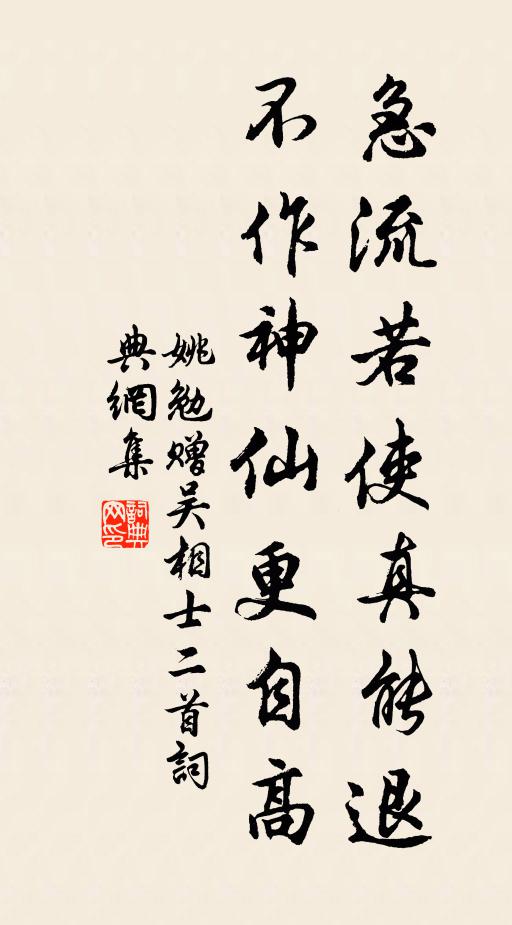 急流若使真能退
不作神仙更自高
姚勉赠吴相士二首詞
典網集
詞典网印